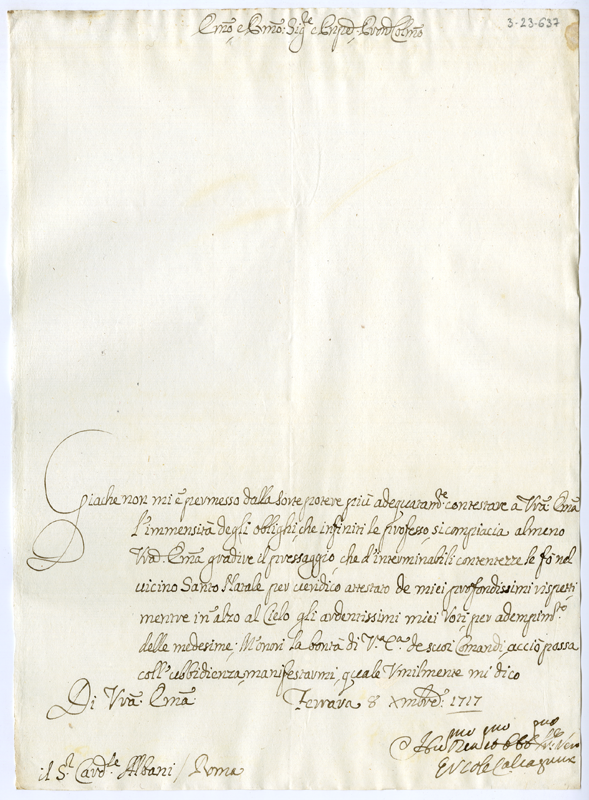 3-23-637
Emo, e Rmo: Sige e Pned. Colmo
Giache non mi è permesso dalla sorte potere più adequatamte: contestare à Vrã Emã
l'immensità degli oblighi che infiniti le professo, si compiacia almeno
Vrã. Emã, gradire il pressaggio, che d'interminabili contentezze le fò nel
vicino Santo Natale per veridico attestato de miei profondissimi rispetti
mentre in'alzo al Cielo gli ardentissimi miei Voti per adempimto:
delle medesime; M'onori la bontà di Va: Ea: de suoi Comandi, acciò possa
coll'ubbidienza manifestarmi, quale Umilmente mi dico
Di Vrã: Emã: Ferrara 8 Xmbre: 1717
Ercole Calcagnini
il Sr. Cardle Albani / Roma